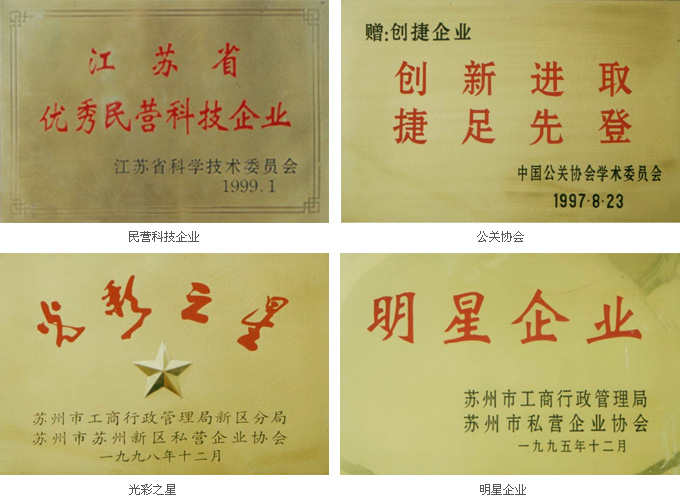 江苏省
优秀民营科技企业
江苏省科学技术委员会
1999.1
民营科技企业
赠:创捷企业
创新进取
捷足先登
中国公关协会学术委员会
1997·8·23
公关协会
光彩之星
苏州市工商行政管理局新区分局
苏州市苏州新区私营企业协会
一九九八年十二月
光彩之星
明星企业
苏州市工商行政管理局
苏州市私营企业协会
一九九五年十二月
明星企业